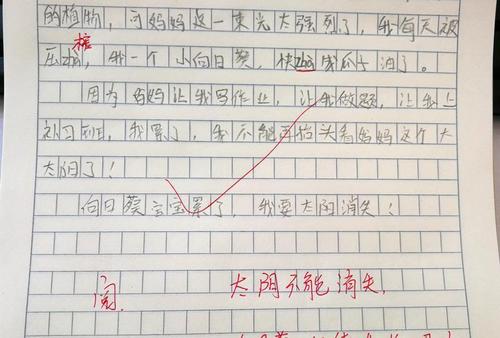 的植物，可妈妈这一束光太强烈了，我每天被
榨
压zha，我一个小向日葵，快zha成瓜子油了。
因为妈妈让我写作业，让我做题，让我上
补习班，我累了，我不能再抬头看妈妈这个大
太阳了！
向日葵宝宝累了，我要太阳消失！
阅.
太阳不能消失.